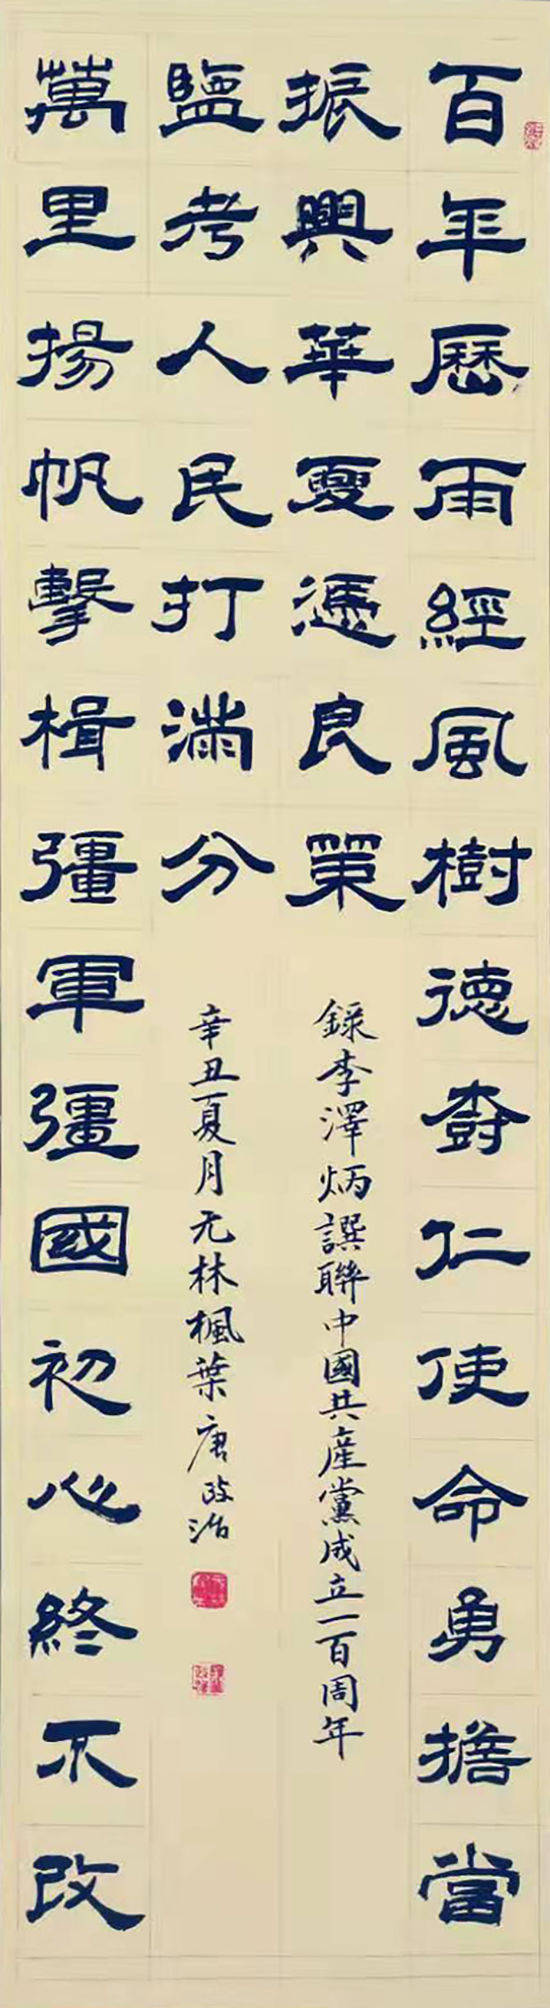 百年歷雨經風樹德樹仁使命勇擔當
振興華夏憑良策
萬里揚帆擊楫彊軍彊國初心終不改
監考人民打滿分
錄李澤炳譔聯中國共產黨成立一百周年
辛丑夏月无林楓葉唐政治